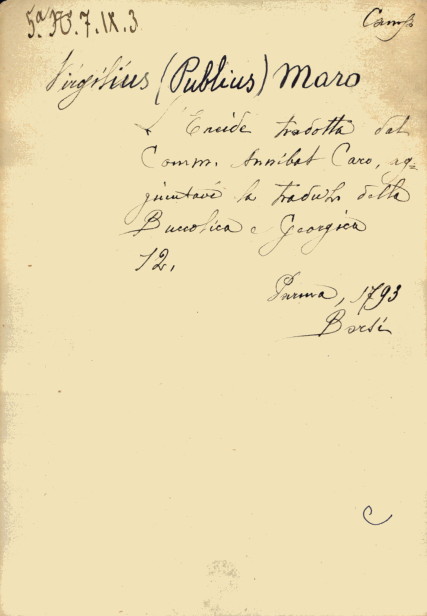 5.ª 7. IX. 3
Virgilius (Publius) Maro
L'Eneide tradotta dal
Comm. Annibal Caro, ag=
giuntavi la traduz. della
Buccolica e Georgica
12.
Parma, 1793
Borsi